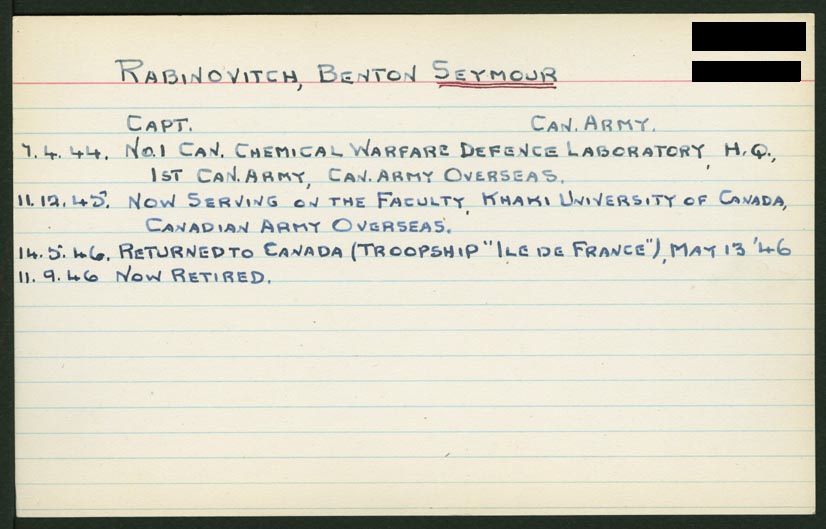 RABINOVITCH, BENTON SEYMOUR
CAPT. CAN. ARMY.
7.4.44. NO.1 CAN. CHEMICAL WARFARE DEFENCE LABORATORY, H.Q.,
1ST CAN. ARMY, CAN. ARMY OVERSEAS.
11.12.45. NOW SERVING ON THE FACULTY, KHAKI UNIVERSITY OF CANADA,
CANADIAN ARMY OVERSEAS.
14.5.46. RETURNED TO CANADA (TROOPSHIP "ILE DE FRANCE"), MAY 13 '46
11.9.46 NOW RETIRED.